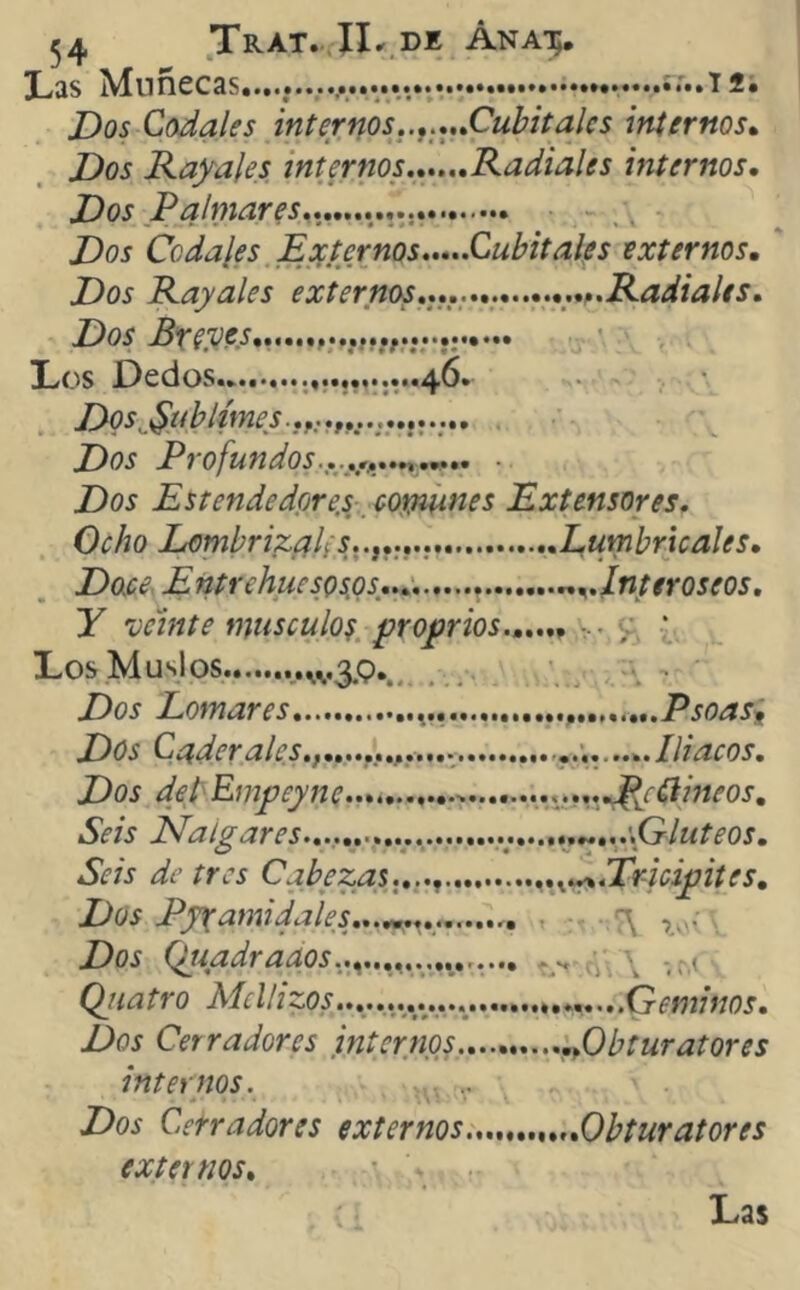 54 TRAT. II. DE ANAT.
Las Muñecas..............................12.
Dos Codales internos.......Cubitales internos.
Dos Rayales internos.......Radiales internos.
Dos Palmares....................
Dos Codales Externos.....Cubitales externos.
Dos Rayales externos..................Radiales.
Dos Breves........................
Los Dedos....................46.
Dos Sublimes..................
Dos Profundos...............
Dos Estendedores comunes Extensores.
Ocho Lombrizales..................Lumbricales.
Doce Entrehuesosos....................Interoseos.
Y veinte musculos proprios......
Los Muslos............30.
Dos Lomares.................................Psoas,
Dos Caderales..............................Iliacos.
Dos del Empeyne........................Pectineos.
Seis Nalgares..............................Gluteos.
Seis de tres Cabezas....................Tricipites.
Dos Pyramidales.................
Dos Quadrados..................
Quatro Mellizos...........................Geminos.
Dos Cerradores internos............Obturatores
internos.
Dos Cerradores externos...........Obturatores
externos.
Las